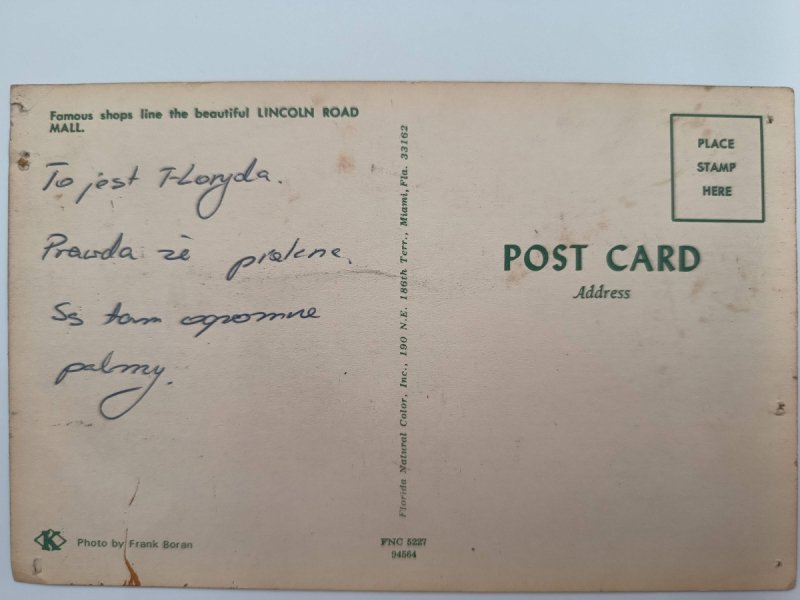 Famous shops line the beautiful LINCOLN ROAD
MALL.
To jest Floryda.
Prawda że piękne.
Są tam ogromne
palmy.
Photo by Frank Boran
Florida Natural Color, Inc., 190 N.E. 186th Terr., Miami, Fla. 33162
FNC 5227
94564
PLACE
STAMP
HERE
POST CARD
Address
K